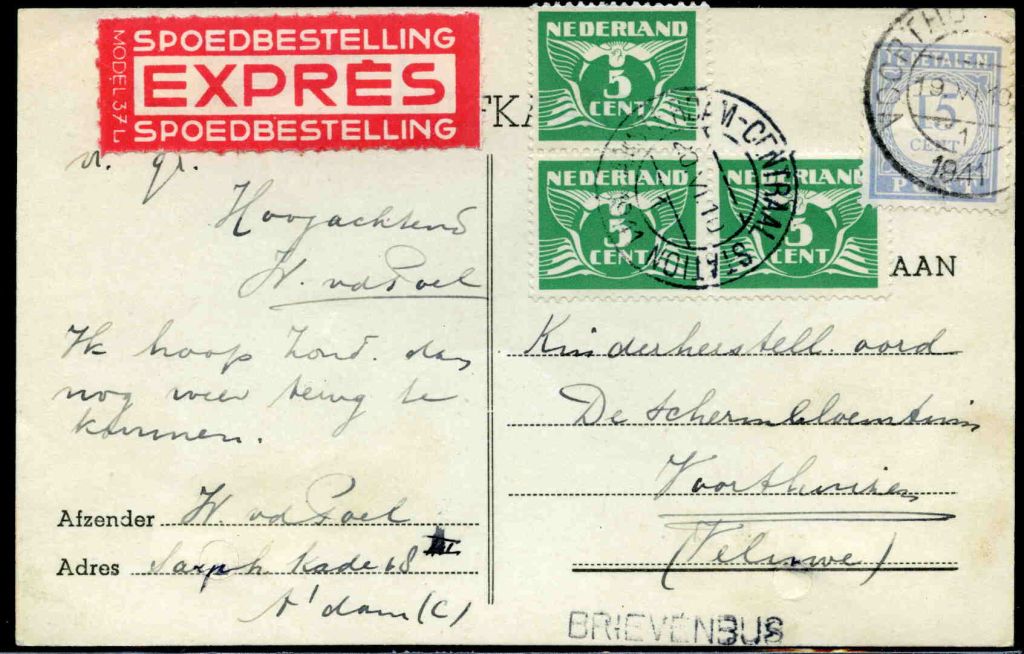 MODEL 37 L.
SPOEDBESTELLING
EXPRÈS
SPOEDBESTELLING
NEDERLAND
5
CENT
NEDERLAND
5
CENT
NEDERLAND
5
CENT
DAM-CENTRAAL STATION
1941
TE BETALEN
15
CENT
PORT
19 VI
1941
v. gr.
Hoogachtend
W. vd Poel
Ik hoop Zond. dan
nog weer terug te
kommen.
Afzender W. vd Poel
Adres Sarph. Kade 68 III
A'dam (C)
AAN
Kinderherstell. oord
De Schermbloemtuin
Voorthuizen
(Veluwe)
BRIEVENBUS